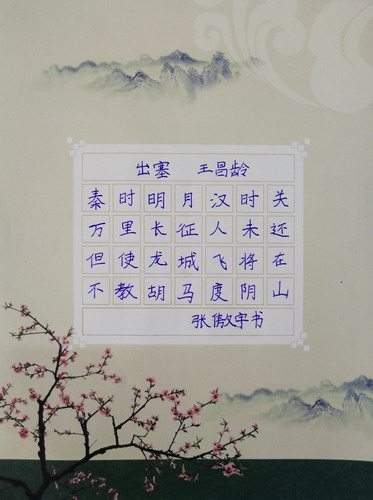 出塞 王昌龄
秦时明月汉时关
万里长征人未还
但使龙城飞将在
不教胡马度阴山
张傲宇书